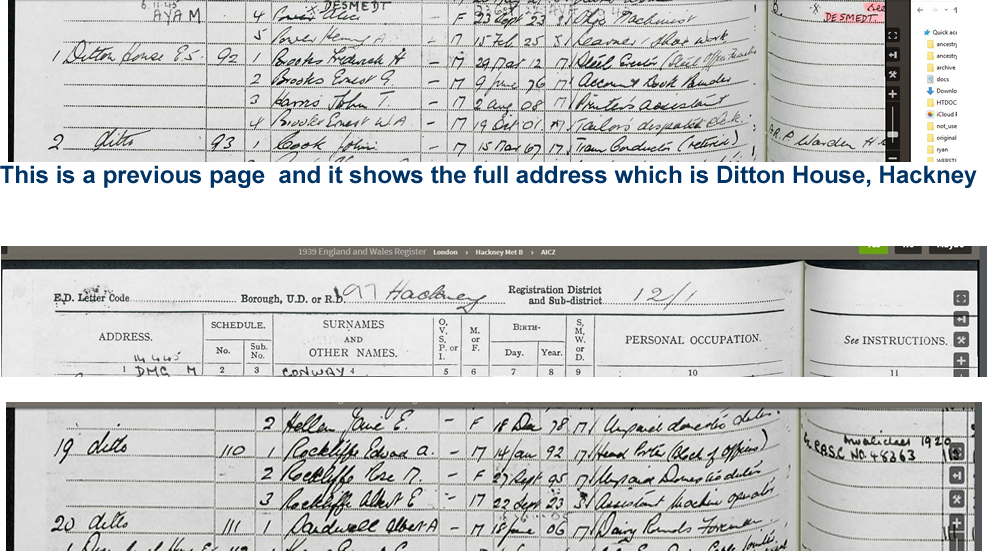 6.11.45 DESMEDT DESMEDT
AYA M 4 Power Alice - F 23 Sept 23 Machinist
5 Power Henry A. - M 15 Feb 25 S Learner shop work
1 Ditton House E.5. 92 1 Brooks Frederick H - M 29 Mar 12 M Steel Erector
2 Brooks Ernest G - M 9 June 76 M Account Book Binder
3 Harris John T. - M 2 Aug 08 M Printers assistant
4 Brooks Ernest W.A - M 19 Oct 01 M Tailor's dispatch clerk
2 ditto 93 1 Cook John - M 15 Mar 67 M Tram Conductor (retired) A.R.P. Warden
Quick acc
ancestry
ancestr
archive
docs
Downlo
HTDOC
iCloud F
not_use
original
ryan
WEBSIT
This is a previous page and it shows the full address which is Ditton House, Hackney
1939 England and Wales Register London > Hackney Met B > AICZ
E.D. Letter Code Borough, U.D. or R.D. 197 Hackney Registration District and Sub-district 12/1
ADDRESS. SCHEDULE. No. Sub. No. SURNAMES AND OTHER NAMES. O, V, S, P, or I. M. or F. BIRTH- Day. Year. S, M, W, or D. PERSONAL OCCUPATION. See INSTRUCTIONS.
14.4.45
1 DMG M 2 3 CONWAY 4 5 6 7 8 9 10 11
2 Hellen Jane E. - F 18 Dec 78 M Unpaid domestic duties
19 ditto 110 1 Rockliffe Edward A. - M 14 Jan 92 M Head Porter (Block of Offices) Invalided 1920
R.A.S.C. NO. 48363
2 Rockliffe Rose M. - F 27 Sept 95 M Unpaid Domestic duties
3 Rockliffe Albert E - M 22 Sept 23 S Assistant Machine operator
20 ditto 111 1 Dardwell Albert A - M 18 June 06 M Dairy Rounds Foreman